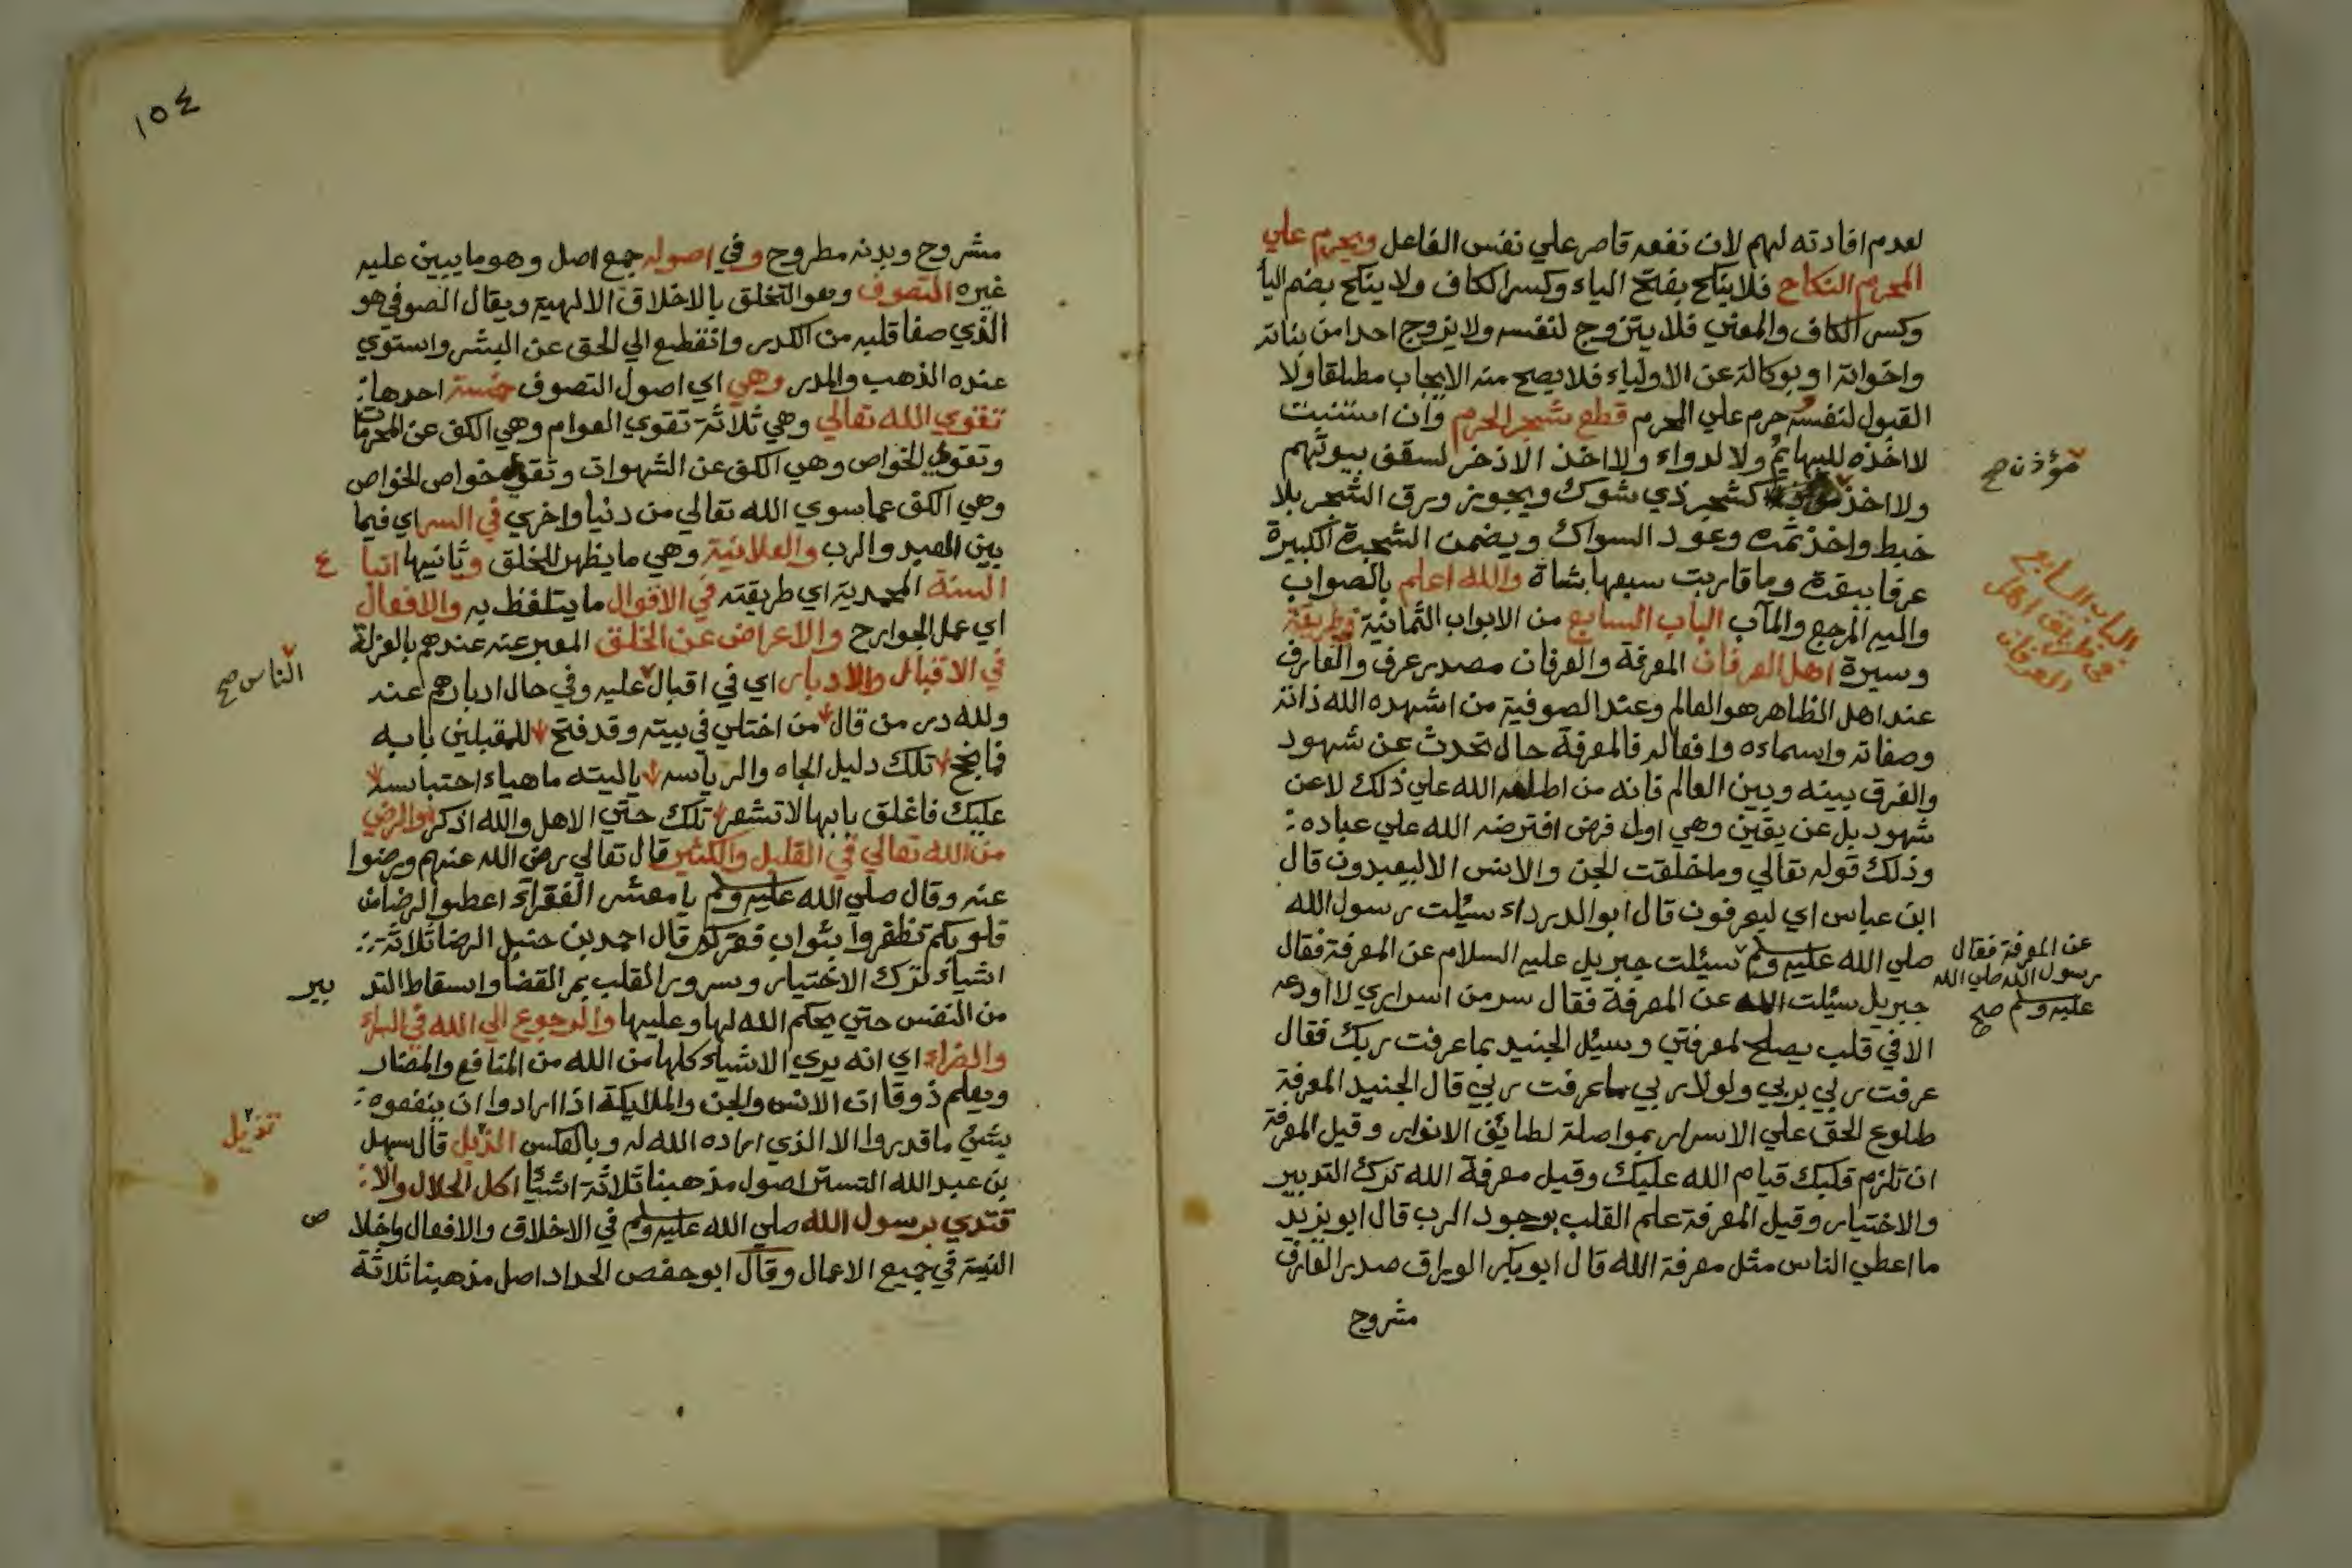 لعدم افادته لهم لان نفعه قاصر علي نفس الفاعل ويحرم علي
المحرم النكاح فلا ينكح بفتح الياء وكسر الكاف ولا ينكح بضم اليا
وكسر الكاف والمعني فلا يتزوج لنفسه ولا يزوج احدا من بناته
واخواته او بوكالة عن الاولياء فلا يصح منه الايجاب مطلقا ولا
القبول لنفسه وحرم علي المحرم قطع شجر الحرم وان استنبت
لا اخذه للبهايم ولا لدواء ولا اخذ الاذخر لسقف بيوتهم
ولا اخذ كشجر ذي شوك ويجوز ورق الشجر بلا
مؤذن صح
خبط واخذ ثمره وعود السواك ويضمن الشجرة الكبيرة
عرفا ببقرة وما قاربت سبعها بشاة والله اعلم بالصواب
واليه المرجع والمآب الباب السابع من الابواب الثمانية في طريقة
الباب السابع
في طريق اهل
العرفان
وسيرة اهل العرفان المعرفة والعرفان مصدر عرف والعارف
عند اهل الظاهر هو العالم وعند الصوفية من اشهده الله ذاته
وصفاته واسماءه وافعاله فالمعرفة حال تحدث عن شهود
والفرق بينه وبين العالم فانه من اطلعه الله علي ذلك لا عن
شهود بل عن يقين وهي اول فرض افترضه الله علي عباده
وذلك قوله تعالي وما خلقت الجن والانس الا ليعبدون قال
ابن عباس اي ليعرفون قال ابو الدرداء سئلت رسول الله
صلي الله عليه وسلم سئلت جبريل عليه السلام عن المعرفة فقال
عن المعرفة فقال
رسول الله صلي الله
عليه وسلم صح
جبريل سئلت الله عن المعرفة فقال سر من اسراري لا اودعه
الا في قلب يصلح لمعرفتي وسئل الجنيد بما عرفت ربك فقال
عرفت ربي بربي ولولا ربي ما عرفت ربي قال الجنيد المعرفة
طلوع الحق علي الاسرار بمواصلة لطايف الانوار وقيل المعرفة
ان تلزم قلبك قيام الله عليك وقيل معرفة الله ترك التدبير
والاختيار وقيل المعرفة علم القلب بوجود الرب قال ابو يزيد
ما اعطي الناس مثل معرفة الله قال ابو بكر الوراق صدر العارف
مشروح
١٥٤
مشروح وبدنه مطروح وفي اصوله جمع اصل وهو ما يبين عليه
غيره التصوف وهو التخلق بالاخلاق الالهية ويقال الصوفي هو
الذي صفا قلبه من الكدر وانقطع الي الحق عن البشر واستوي
عنده الذهب والمدر وهي اي اصول التصوف خمسة احدها
تقوي الله تعالي وهي ثلاثة تقوي العوام وهي الكف عن المحرمات
وتقوي الخواص وهي الكف عن الشهوات وتقوي خواص الخواص
وهي الكف عما سوي الله تعالي من دنيا واخري في السر اي فيما
بين العبد والرب والعلانية وهي ما يظهر للخلق وثانيها اتبا ع
السنة المحمدية اي طريقته في الاقوال ما يتلفظ به والافعال
اي عمل الجوارح والاعراض عن الخلق المعبر عنه عندهم بالعزلة
في الاقبال والادبار اي في اقبال عليه وفي حال ادبارهم عند
الناس صح
ولله در من قال من اختلي في بيته وقد فتح للمقبلين بابه
فما نجح تلك دليل الجاه والرياسه ياليته ما هياء احتباسه
عليك فاغلق بابها لا تشعر تلك حتي الاهل والله اذكر والرضي
من الله تعالي في القليل والكثير قال تعالي رضي الله عنهم ورضوا
عنه وقال صلي الله عليه وسلم يا معشر الفقراء اعطوا الرضا من
قلوبكم تظفروا بثواب فقركم قال احمد بن حنبل الرضا ثلاثة
اشياء ترك الاختيار وسرور القلب بمر القضا واسقاط التد بير
من النفس حتي يحكم الله لها وعليها والرجوع الي الله في السراء
والضراء اي انه يري الاشياء كلها من الله من المنافع والمضار
ويعلم ذوقا ان الانس والجن والملايكة اذا ارادوا ان ينفعوه
بشئ ما قدروا الا الذي اراده الله له وبالعكس الذيل قال سهل
تذيل
بن عبد الله التستر اصول مذهبنا ثلاثة اشيا اكل الحلال والا
قتدي برسول الله صلي الله عليه وسلم في الاخلاق والافعال واخلا ص
النية في جميع الاعمال وقال ابو حفص الحداد اصل مذهبنا ثلاثة